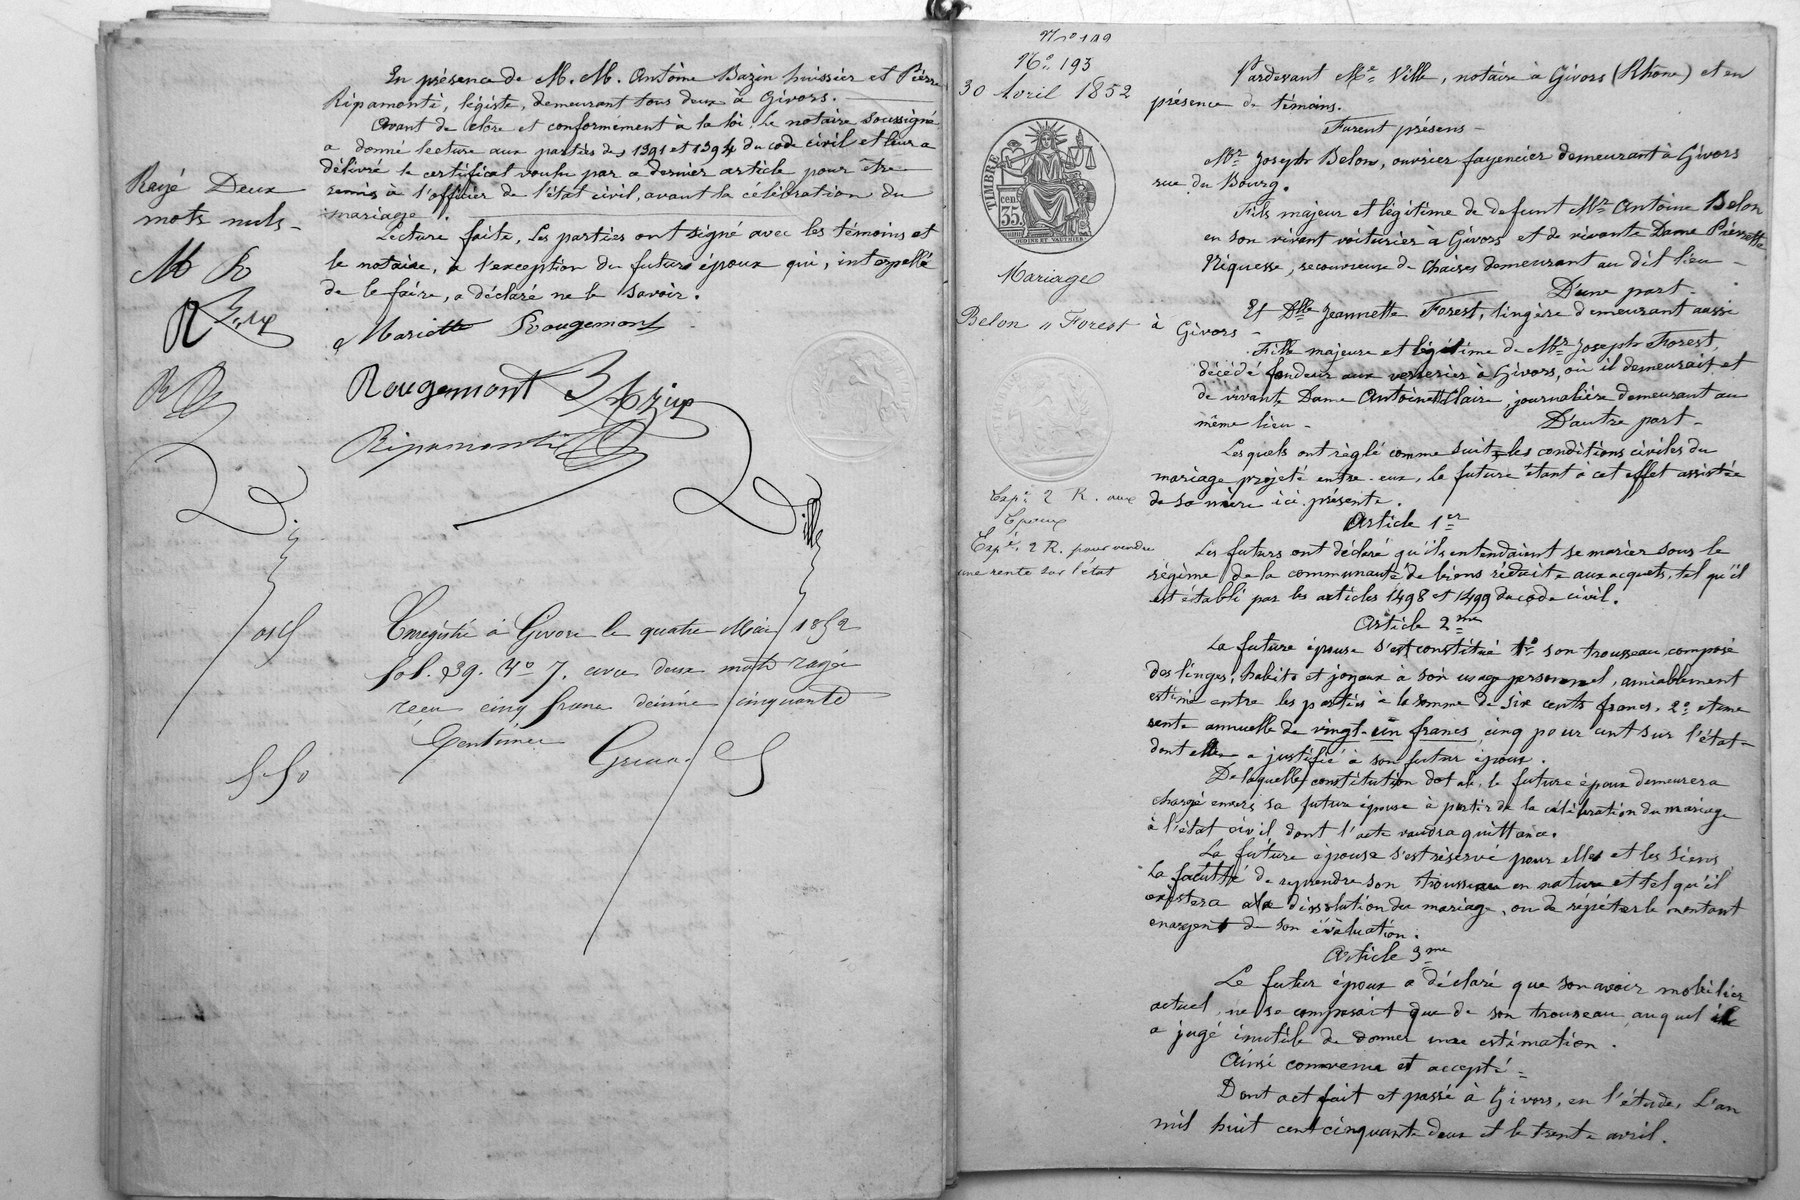 En présence de M. M. Antoine Bazin huissier et Pierre
Ripamonti, légiste, demeurant tous deux à Givors.
Avant de clore et conformément à la loi, le notaire soussigné
a donné lecture aux parties des 1391 et 1394 du code civil et leur a
délivré le certificat voulu par ce dernier article pour être
remis à l'officier de l'état civil, avant la célébration du
mariage.
Lecture faite, les parties ont signé avec les témoins et
le notaire, à l'exception du futur époux qui, interpellé
de le faire, a déclaré ne le savoir.
Rayé Deux
mots nuls
M R
R
Mariette Rougemont
Rougemont Bazin
Ripamonti
Ville
Enregistré à Givors le quatre Mai 1852
fol. 39. Vo 7. avec deux mots rayés
reçu cinq francs décime cinquante
centimes
5 50
No 193
30 Avril 1852
TIMBRE
35 cent.
Mariage
Belon & Forest
Expé 2 R. aux
Epoux
Expé. 2 R. pour vendre
une rente sur l'état
Pardevant Me Ville, notaire à Givors (Rhône) et en
présence de témoins.
Furent présens
Mr Joseph Belon, ouvrier fayencier demeurant à Givors
rue du Bourg.
Fils majeur et légitime de defunt Mr Antoine Belon
en son vivant voiturier à Givors et de vivante Dame Pierrette
Niquesse, recouvreuse de chaises demeurant au dit lieu
D'une part
Et Dlle Jeannette Forest, lingère demeurant aussi
à Givors
Fille majeure et légitime de Mr Joseph Forest,
décédé fondeur aux verreries à Givors, où il demeurait et
de vivante Dame Antoinette Claire, journalière demeurant au
même lieu
D'autre part
Lesquels ont règlé comme suit les conditions civiles du
mariage projeté entre eux, la future étant à cet effet assistée
de sa mère ici présente.
Article 1er
Les futurs ont déclaré qu'ils entendaient se marier sous le
régime de la communauté de biens réduite aux acquets, tel qu'il
est établi par les articles 1498 et 1499 du code civil.
Article 2me
La future épouse s'est constitué 1o son trousseau, composé
des linges, habits et joyaux à son usage personnel, amiablement
estimé entre les parties à la somme de six cents francs, 2o et une
rente annuelle de vingt-un francs cinq pour cent sur l'état
dont elle a justifié à son futur époux.
De laquelle constitution dotale, le future époux demeurera
chargé envers sa future épouse à partir de la célébration du mariage
à l'état civil dont l'acte vaudra quittance.
La future épouse s'est réservé pour elle et les siens
la faculté de reprendre son trousseau en nature et tel qu'il
existera à la dissolution du mariage, ou de répéter le montant
en argent de son évaluation.
Article 3me
Le futur époux a déclaré que son avoir mobilier
actuel, ne se composait que de son trousseau, auquel il
a jugé inutile de donner une estimation.
Ainsi convenu et accepté
Dont act fait et passé à Givors, en l'étude, L'an
mil huit cent cinquante deux et le trente avril.